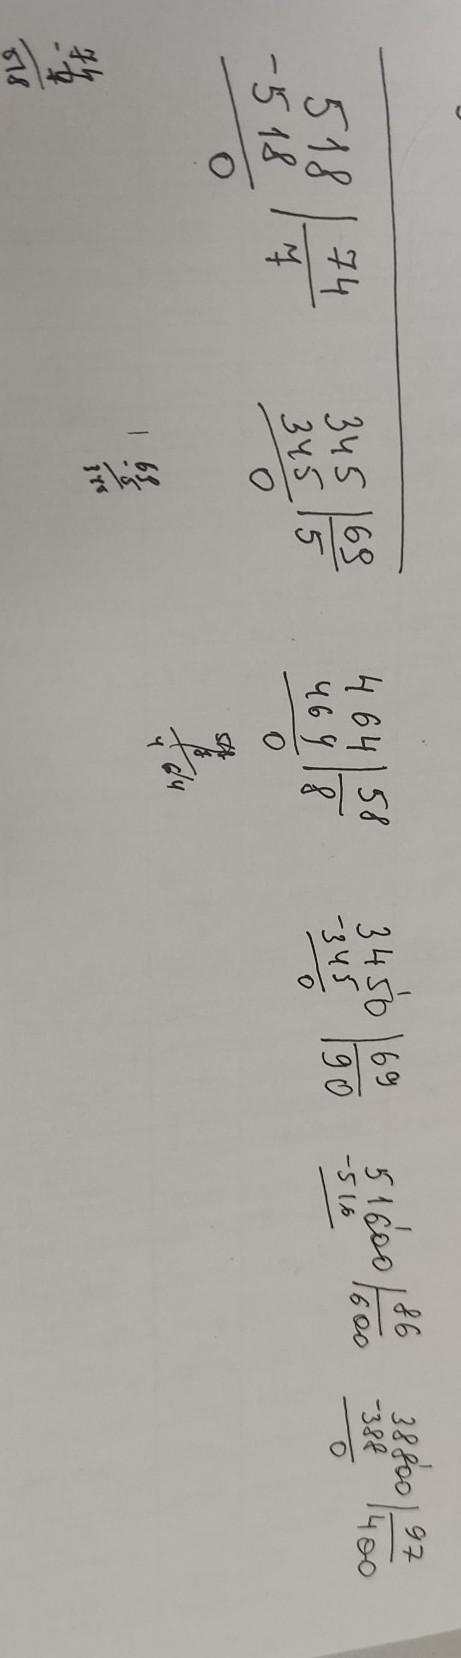 518 | 74
-518 | 7
0
74
7
518
345 | 69
345 | 5
0
69
5
345
464 | 58
464 | 8
0
58
8
464
3450 | 69
-345 | 90
0
51600 | 86
-516 | 600
38800 | 97
-388 | 400
0